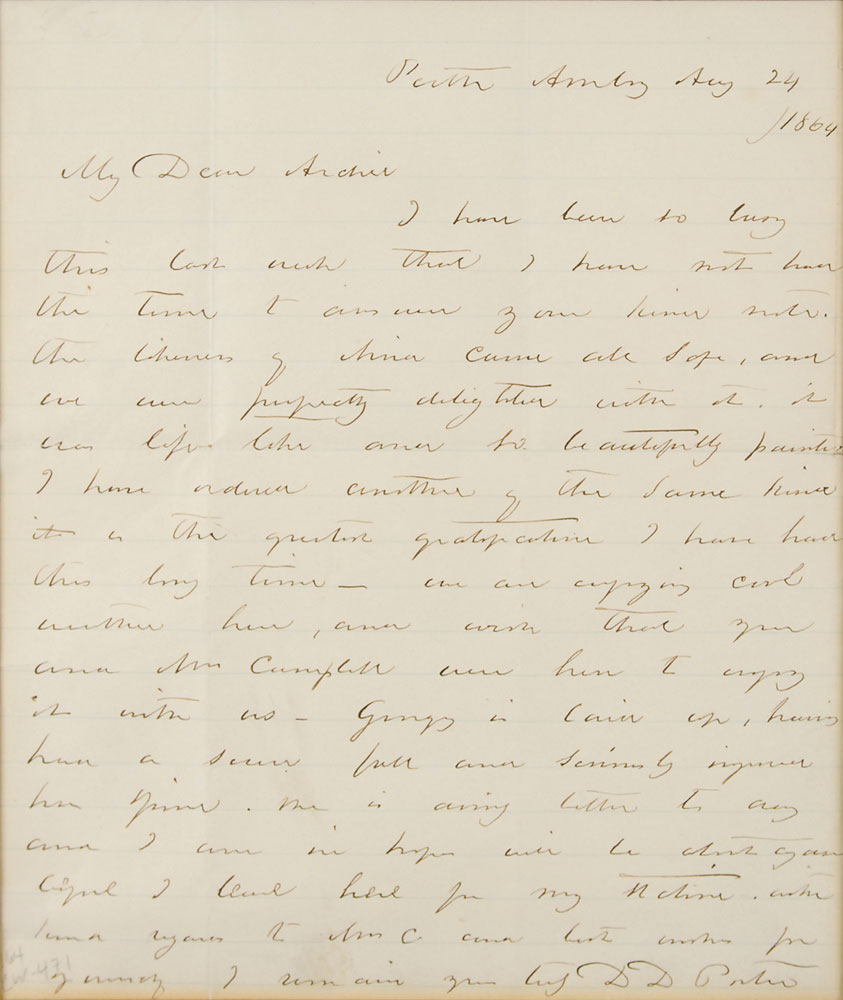 Perth Amboy Aug 24
/1864
My Dear Archie
I have been so busy
this last week that I have not had
the time to answer your kind note.
The likeness of Nina came all safe, and
we are perfectly delighted with it. it
was life like and so beautifully painted
I have ordered another of the same kind
it is the greatest gratification I have had
this long time — we are enjoying cool
weather here, and wish that you
and Mrs Campbell were here to enjoy
it with us – Georgy is laid up, having
had a severe fall and seriously injured
her spine. she is doing better to day
and I am in hopes will be about again
before I leave here for my station. with
kind regards to Mrs C and best wishes for
yourself I remain yours truly D D Porter